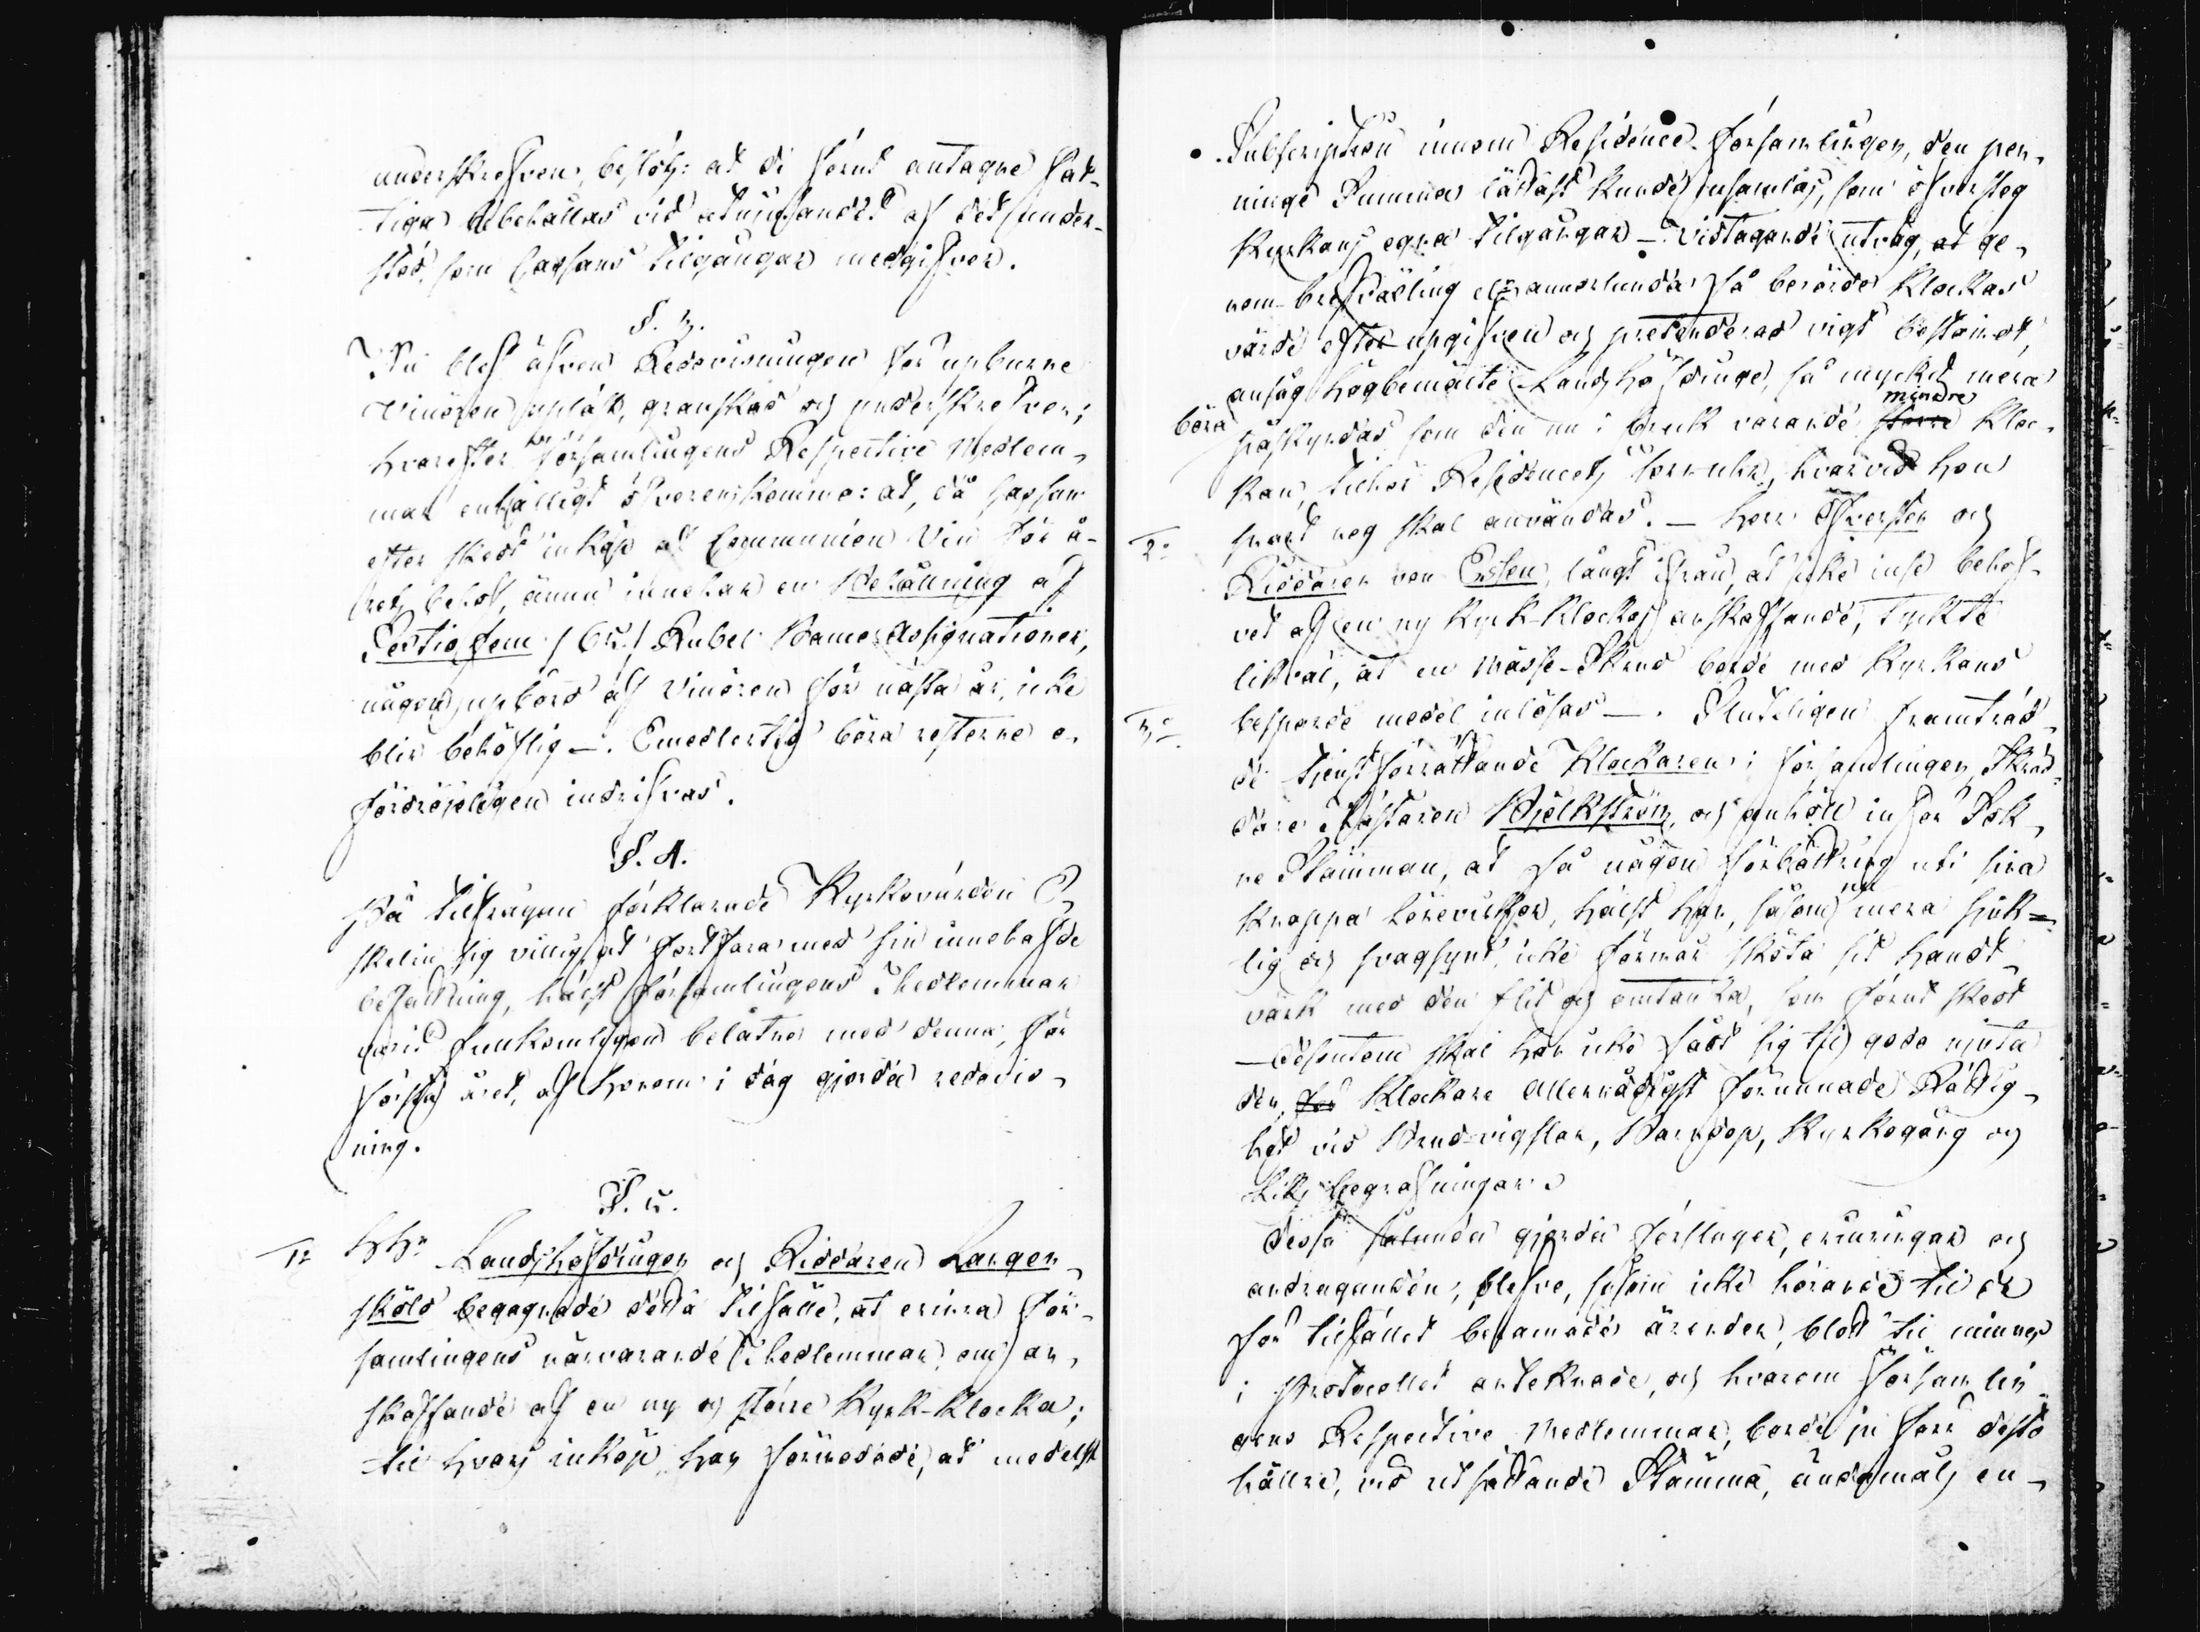 underskrefven, beslöts: at de förut antagne fat-
tiga bibehållas vid åtnjutandet af det under-
stöd, som Cassans tilgångar medgifver.
§. 3.
Nu blef äfven Redovisningen för upburne
Vinören upläst, granskad och underskrefven;
hvarefter Församlingens Respective Medlem-
mar enhälligt öfverenskommo: at, då Cassan
efter skedt inköp af Communion Vin för å-
rets behof, ännu innehar en Behållning af
Sextio fem /65/ Rubel Banco Assignationer,
någon upbörd af Vinören för nästa år, icke
blir behöflig —. Emedlertid böra resterne o-
fördröjeligen indrifvas.
§. 4.
På tilfrågan förklarade Kyrkovärden E-
skelin sig villig, at fortfara med sin innehafde
befattning, hälst Församlingens Medlemmar
varit fullkomligen belåtne med denna, för
första året, af honom i dag gjorda redovis-
ning.
§. 5.
1o HHr Landshöfdingen och Riddaren Langen-
sköld begagnade detta tilfälle, at erinra För-
samlingens närvarande Medlemmar, om an-
skaffande af en ny och större Kyrk-Klocka;
til hvars inköp han förmodade, at medelst
Subscription inom Residence-Församlingen, den pen-
ninge Summa lättast kunde insamlas, som öfversteg
Kyrkans egna tilgångar — Vidtagande utväg, at ge-
nom brefväxling eller annorlunda få berörde Klockas
värde efter upgifven och pretenderad vigt bestämdt,
ansåg Högbemälte Landshöfdinge, så mycket mera
böra påskyndas som den nu i bruk varande större mindre Kloc-
kan, tilhör Residencets torn uhr, hvarvid hon
snart nog skal användas. — Herr Öfversten och
2o Riddaren von Essen, långt ifrån, at icke inse behof-
vet af en ny Kyrk-Klockas anskaffande, tyckte
likväl, at en Mässe-Skrud borde med Kyrkans
3o besparde medel inlösas —. Sluteligen framträd-
de tjenstförrättande Klockaren i Församlingen, Skräd-
dare Mästaren Mjölkström, och anhöll inför Sok-
ne Stämman, at få någon förbättring uti sina
knappa lönevilkor, hälst han, såsom mera sjuk-
lig och svagsynt, icke förmår sköta sit handt-
värk med den flid och omtanka, som förut skedt
— desutom skal han icke fådt sig til godo njuta
den, för Klockare Allernådigst förunnade Rättig-
het vid Brudvigslar, Barndop, Kyrkogång och
Liks begrafningar.
Dessa sålunda gjorda förslager, erinringar och
andraganden, blefvo, såsom icke hörande til de
för tilfället berammade ärender, blott til minnes
i Protocollet antecknade, och hvarom Församlin-
gens Respective Medlemmar, borde ju förr desto
hällre, vid utsättande Stämma, ändamåls en-